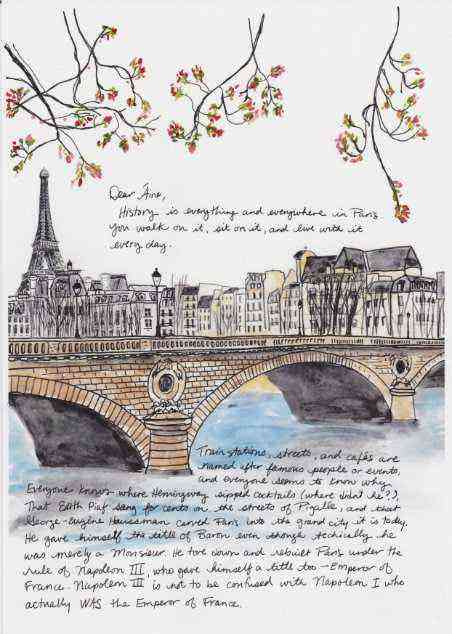 Dear Áine,
History is everything and everywhere in Paris
You walk on it, sit on it, and live with it
every day.
Train stations, streets, and cafés are
named after famous people or events,
and everyone seems to know why.
Everyone knows where Hemingway sipped cocktails (where didn't he?).
That Edith Piaf sang for cents on the streets of Pigalle, and that
George-Eugène Haussman carved Paris into the grand city it is today.
He gave himself the title of Baron even though techically he
was merely a Monsieur. He tore down and rebuilt Paris under the
rule of Napoleon III, who gave himself a title too - Emperor of
France. Napoleon III is not to be confused with Napoleon I who
actually WAS the Emperor of France.